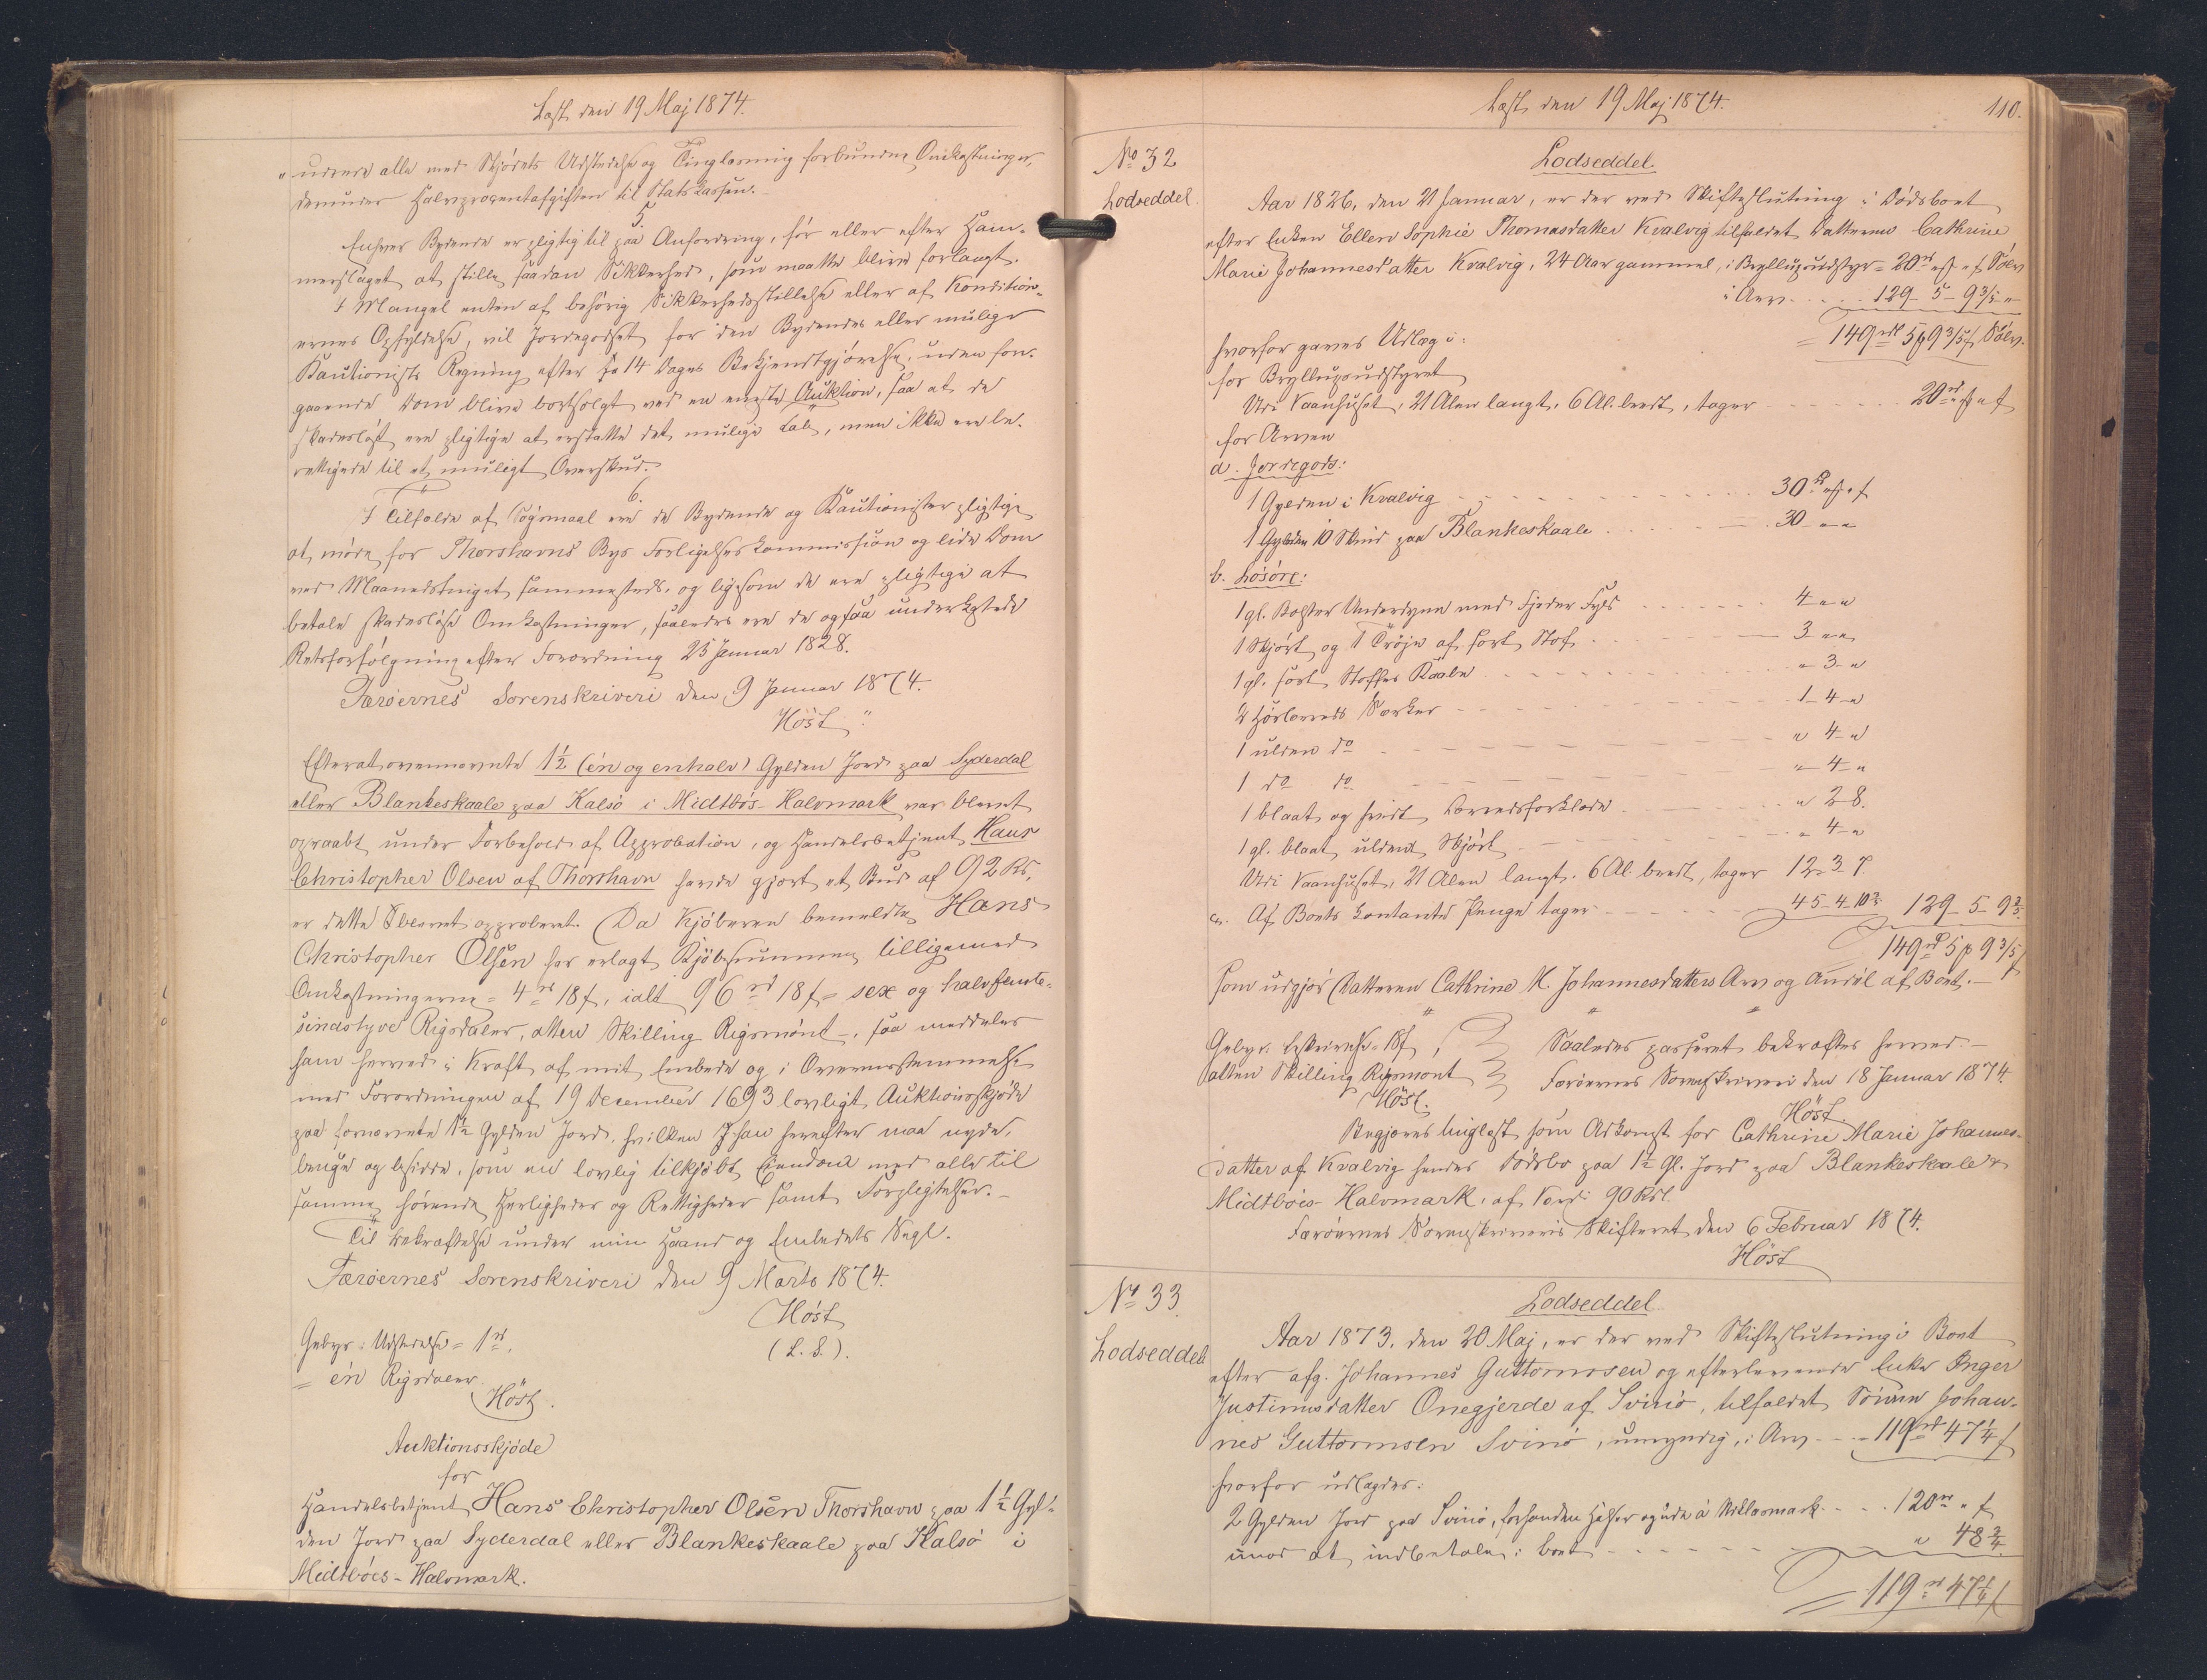 Læst den 19 Maj 1874.
" udrede alle med Skjødets Udstedelse og Tinglæsning forbundne Omkostninger,
derunder Halvprocentafgiften til Statskassen.
5.
Enhver Bydende er pligtig til paa Anfordring, før eller efter Ham-
merslaget at stille saadan Sikkerhed, som maatte blive forlangt.
I Mangel enten af behørig Sikkerhedsstillelse eller af Kondition-
ernes Opfyldelse, vil Jordegodset for den Bydendes eller mulige
Kautionists Regning efter 14 Dages Bekjendtgjørelse, uden for-
gaaende Dom blive bortsolgt ved en eneste Auktion, saa at de
skadesløst ere pligtige at erstatte det mulige Tab, men ikke ere be-
rettigede til et muligt Overskud.
6.
I Tilfælde af Søgsmaal ere de Bydende og Kautionister pligtige
at møde for Thorshavns Byes Forligelseskommission og lide Dom
ved Maanedstinget sammesteds, og ligesom de ere pligtige at
betale skadesløse Omkostninger, saaledes ere de ogsaa underkastede
Retsforfølgning efter Forordning 25 Januar 1828.
Færøernes Sorenskriveri den 9 Januar 1874.
Høst "
Efterat ovennævnte 1½ (én og en halv) Gylden Jord paa Syderdal
eller Blankeskaale paa Kalsø i Midtbøs-Halvmark var blevet
opraabt under Forbehold af Approbation, og Handelsbetjent Hans
Christopher Olsen af Thorshavn havde gjort et Bud af 92 Rd.,
er dette blevet approberet. Da Kjøberen bemeldte Hans
Christopher Olsen har erlagt Kjøbesummen tilligemed
Omkostningerne = 4 rd 18 ß, ialt 96 rd 18 ß = sex og halvfemte-
sindstyve Rigsdaler, atten Skilling Rigsmønt -, saa meddeles
ham herved i Kraft af mit Embede og i Overensstemmelse
med Forordningen af 19 December 1693 lovligt Auktionsskjøde
paa fornævnte 1½ Gylden Jord, hvilken han herefter maa nyde,
bruge og besidde, som en lovlig tilkjøbt Eiendom med alle til
samme hørende Herligheder og Rettigheder samt Forpligtelser. -
Til Bekræftelse under min Haand og Embedets Segl.
Færøernes Sorenskriveri den 9 Marts 1874.
Høst
(L. S.).
Gebyr: Udstedelse = 1 rd.
= én Rigsdaler.
Høst.
Auktionsskjøde
for
Handelsbetjent Hans Christopher Olsen Thorshavn paa 1½ Gyl-
den Jord paa Syderdal eller Blankeskaale paa Kalsø i
Midtbøes-Halvmark.
Læst den 19 Maj 1874.
110.
No 32
Lodseddel.
Lodseddel.
Aar 1826, den 21 Januar, er der ved Skifteslutning i Dødsboet
efter Enken Ellen Sophie Thomasdatter Kvalvig tilfaldet Datteren Cathrine
Marie Johannesdatter Kvalvig, 24 Aar gammel, i Bryllupsudstyr = 20 rd " ß Sølv
i Arv . . . . 129 - 5 - 9 3/5 "
= 149 rd 5 9 3/5 ß Sølv.
hvorfor gaves Udlæg i:
for Bryllupsudstyret
Udi Vaanhuset, 21 Alen langt, 6 Al. bredt, tager 20 rd " "
for Arven
a. Jordegods:
1 Gylden i Kvalvig 30 rd " "
1 Gylden 10 Skind paa Blankeskaale 30 " "
b. Løsøre:
1 gl. Bolster Underdyne med Fjeder Fyld 4 " "
1 Skjørt og 1 Trøje af sort Stof 3 " "
1 gl. sort Stoffes Kaabe " 3 "
2 Hørlærreds Særker 1 - 4 - "
1 ulden do " 4 - "
1 do do " 4 - "
1 blaat og hvidt Lærredsforklæde " 2 8.
1 gl. blaat ulden Skjørt " 4 - "
Udi Vaanhuset, 21 Alen langt, 6 Al. bredt, tager 12 - 3 7.
c. Af Boets kontante Penge tager 45 - 4 - 10 3/5 129 - 5 - 9 3/5
149 rd 5 9 3/5 ß
som udgjør Datteren Cathrine M. Johannesdatters Arv og Andel af Boet. -
Gebyr: Beskrivelse 18 ß,
atten Skilling Rigsmønt
Høst.
Saaledes passeret bekræftes herved. -
Færøernes Sorenskriveri den 18 Januar 1874.
Høst.
Begjæres tinglæst som Adkomst for Cathrine Marie Johannes-
datter af Kvalvig hendes Dødsbo paa 1½ Gl. Jord paa Blankeskaale i
Midtbøes-Halvmark, af Værdi 90 Rdl.
Færøernes Sorenskriveris Skifteret den 6 Februar 1874.
Høst
No 33.
Lodseddel
Lodseddel.
Aar 1873, den 20 Maj, er der ved Skifteslutning i Boet
efter afg. Johannes Guttormsen og efterlevende Enke Inger
Justinusdatter Onegjerde af Svinø, tilfaldet Sønnen Johan-
nes Guttormsen Svinø, umyndig, i Arv - - - 119 rd 47¼ ß
hvorfor udlagdes:
2 Gylden Jord paa Svinø, - - . 120 rd " ß
imod at indbetale i Boet " 48¾
= 119 rd 47¼ ß